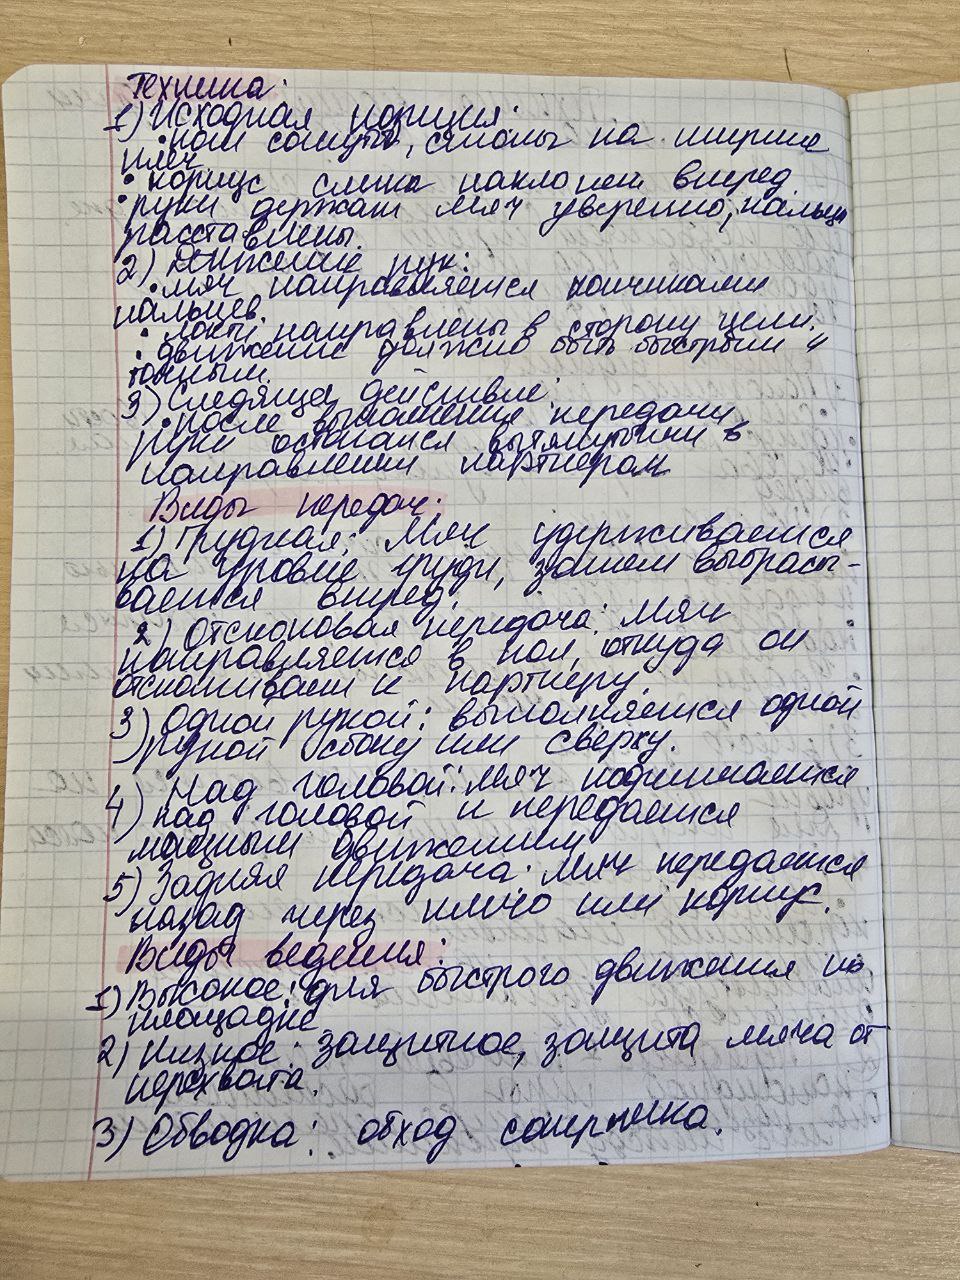 Техника:
1) Исходная позиция:
• ноги согнуты, стопы на ширине
плеч
• корпус слегка наклонен вперед
• руки держат мяч уверенно, пальцы
расставлены.
2) Движение рук:
• мяч направляется кончиками
пальцев.
• локти направлены в сторону цели.
• движение должно быть быстрым и
точным.
3) Следящее действие:
• после выполнения передачи
руки остаются вытянутыми в
направлении партнером
Виды передач:
1) Грудная: Мяч удерживается
на уровне груди, затем выбрасы-
вается вперед.
2) Отскоковая передача: Мяч
направляется в пол, откуда он
отскакивает к партнеру.
3) Одной рукой: выполняется одной
рукой сбоку или сверху.
4) Над головой: мяч поднимается
над головой и передается
мощным движением
5) Задняя передача: мяч передается
назад через плечо или корпус.
Виды ведения:
1) Высокое: для быстрого движения по
площадке
2) Низкое: защитное, защита мяча от
перехвата.
3) Обводка: обход соперника.